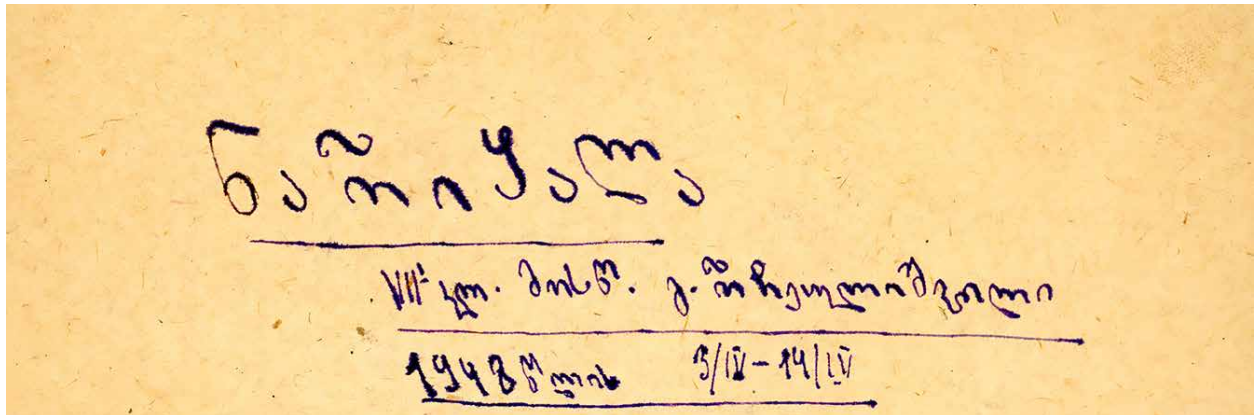 ნარიყალა
VII² კლ. მოსწ. გ. რჩეულიშვილი
1948 წლის 3/IV-14/IV